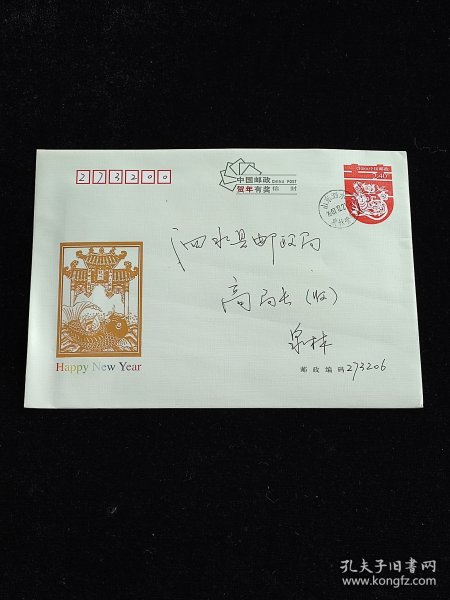 273200
中国邮政 CHINA POST
贺年有奖 信封
China 中国邮政
2.40元
泗水县邮政局
高局长(收)
泉林
Happy New Year
邮政编码 273206
孔夫子旧书网
www.kongfz.com